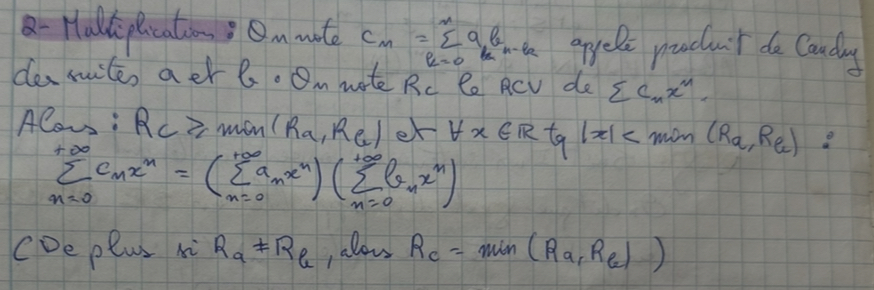 2- Multiplication : On note c_n = Σ_{k=0}^{n} a_k b_{n-k} appelé produit de Cauchy
des suites a et b. On note Rc le RCV de Σ c_n x^n.
Alors : Rc ≥ min(Ra, Rb) et ∀x ∈ ℝ tq |x| < min (Ra, Rb) :
Σ_{n=0}^{+∞} c_n x^n = (Σ_{n=0}^{+∞} a_n x^n) (Σ_{n=0}^{+∞} b_n x^n)
(De plus si Ra ≠ Rb, alors Rc = min (Ra, Rb) )